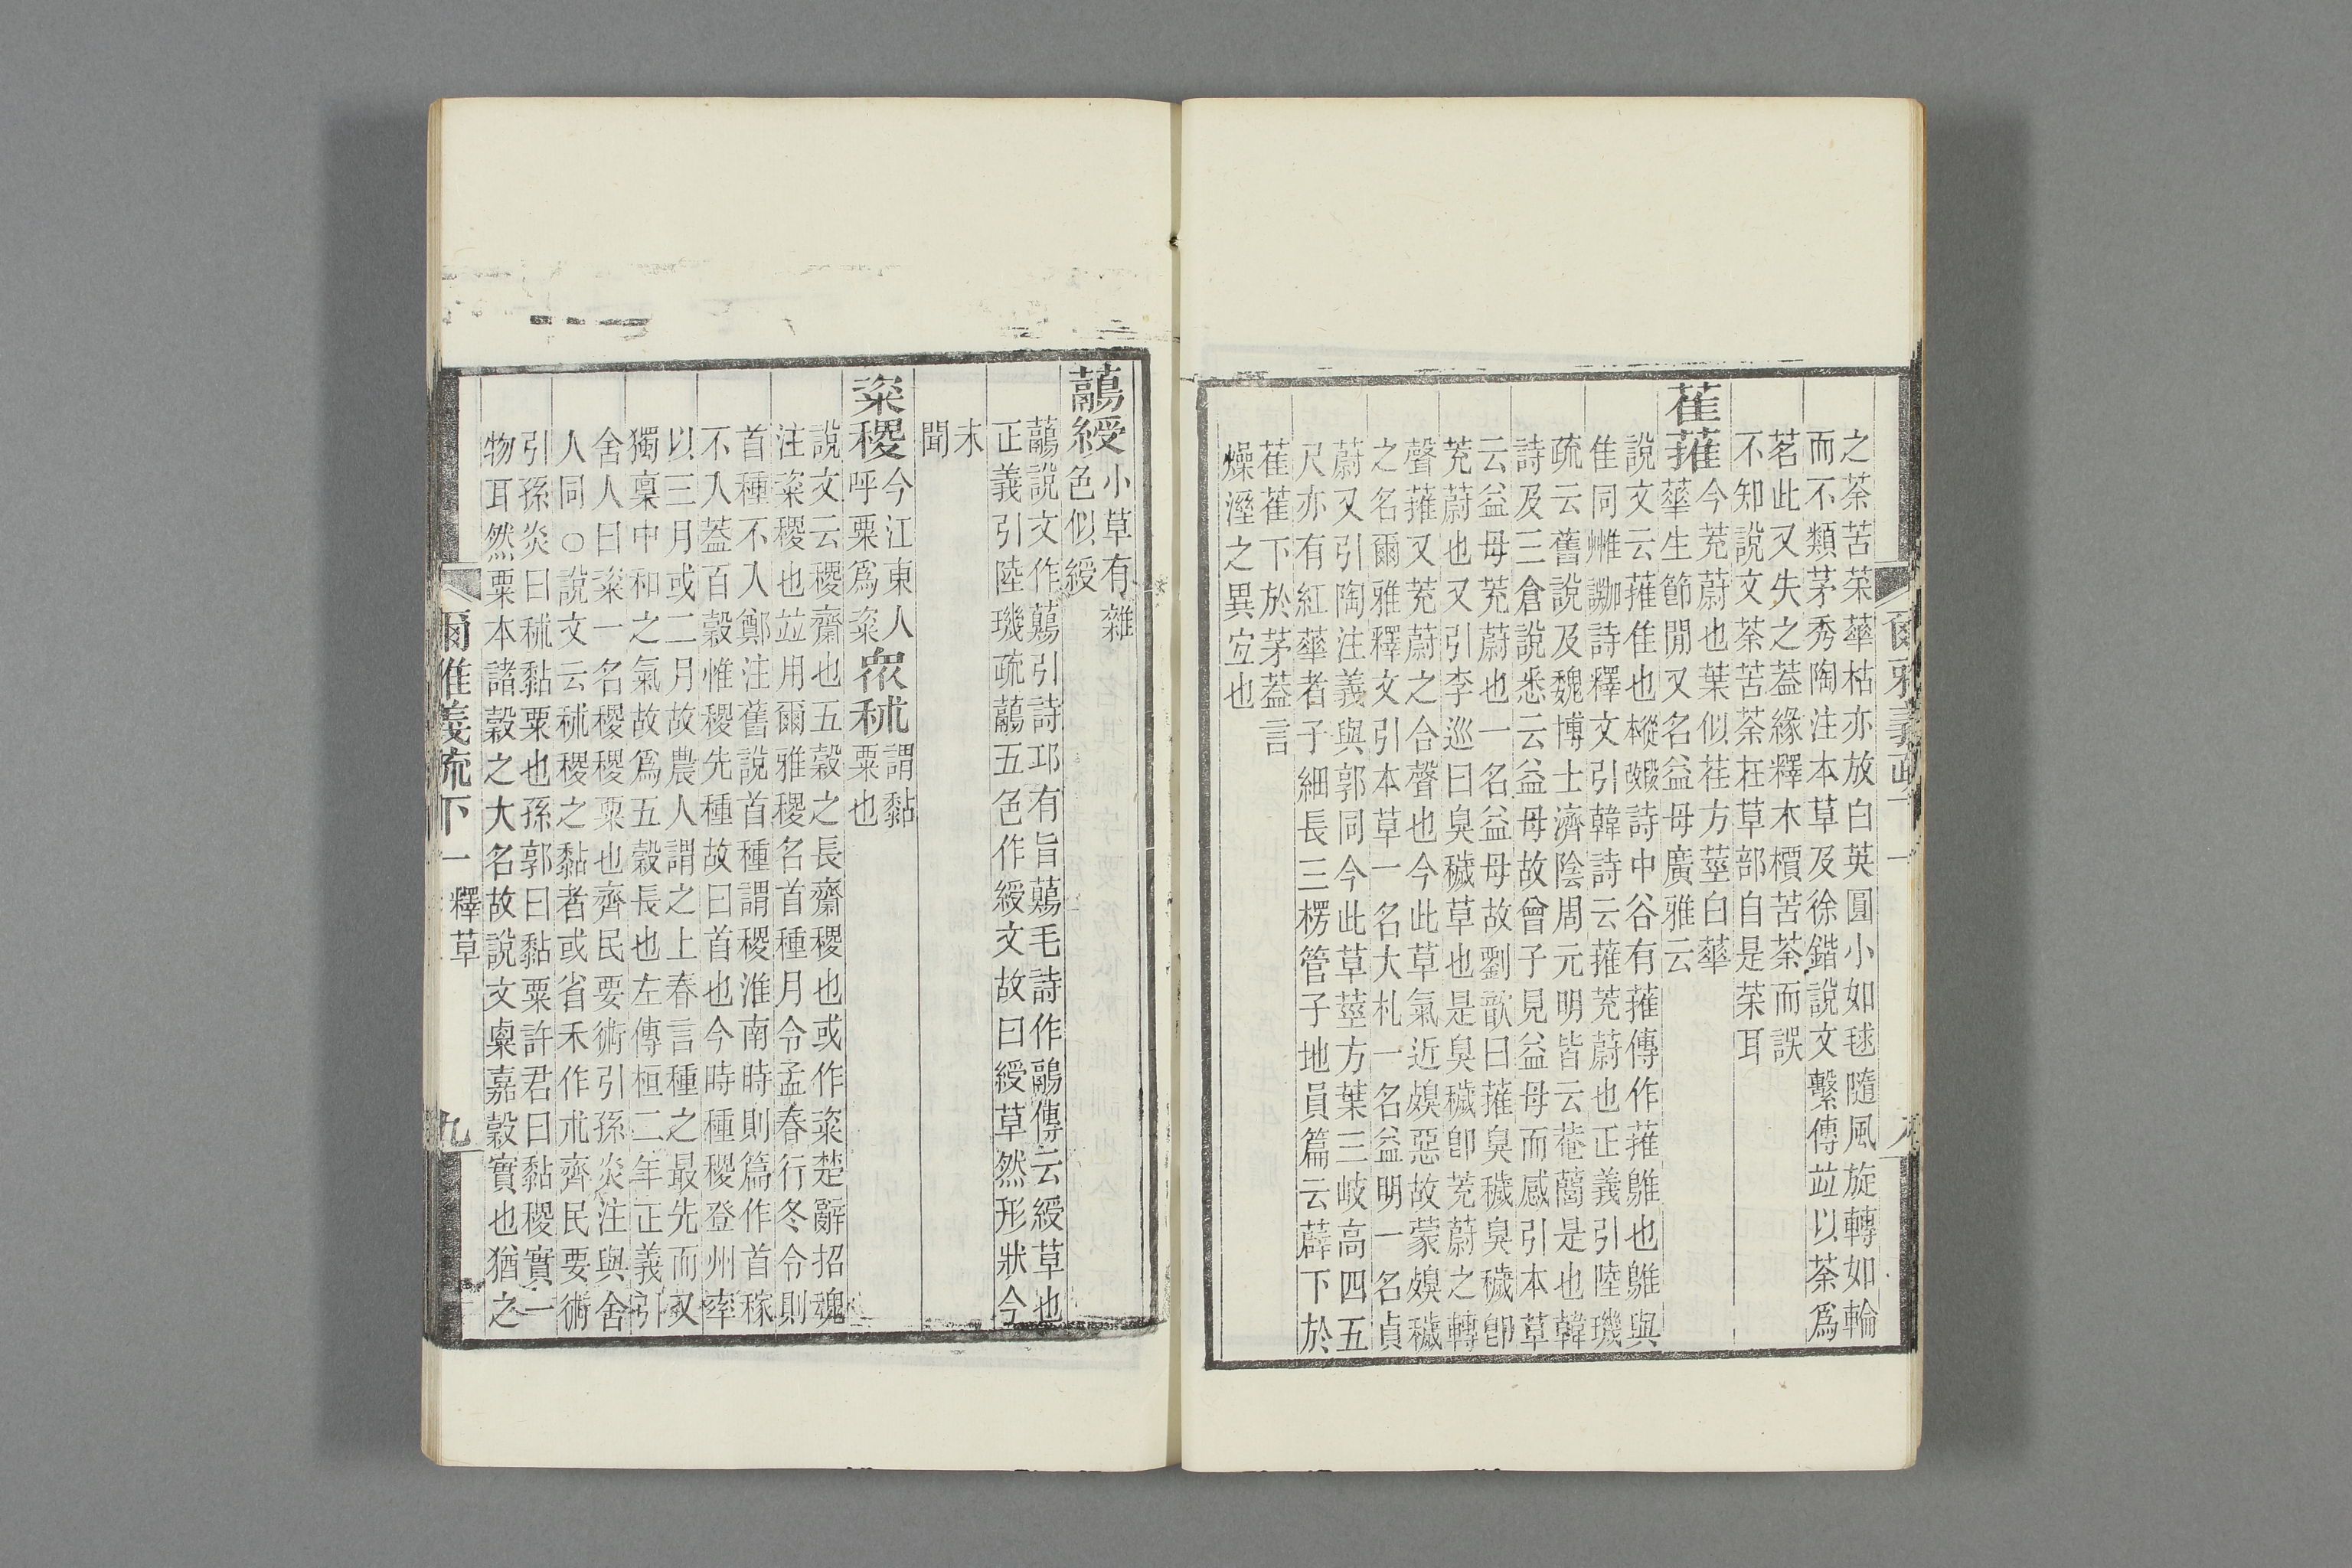 之荼苦荼華枯亦放白英圓小如毬隨風旋轉如輪
而不類茅秀陶注本草及徐鍇說文繫傳竝以荼爲
茗此又失之葢緣釋木檟苦荼而誤
不知說文荼苦荼在草部自是荼耳
萑蓷
今茺蔚也葉似荏方莖白華
華生節閒又名益母廣雅云
說文云蓷萑也詩中谷有蓷傳作蓷鵻也鵻與
隹同詩釋文引韓詩云蓷茺蔚也正義引陸璣
疏云舊說及魏博士濟陰周元明皆云菴䕡是也韓
詩及三倉說悉云益母故曾子見益母而感引本草
云益母茺蔚也一名益母故劉歆曰蓷臭穢臭穢卽
茺蔚也又引李巡曰臭穢草也是臭穢卽茺蔚之轉
聲蓷又茺蔚之合聲也今此草氣近臭惡故蒙臭穢
之名爾雅釋文引本草一名大札一名益明一名貞
蔚又引陶注義與郭同今此草莖方葉三岐高四五
尺亦有紅華者子細長三楞管子地員篇云薜下於
萑萑下於茅葢言
燥溼之異宜也
爾雅義疏
虉綬
小草有雜
色似綬
虉說文作鷊引詩邛有旨鷊毛詩作鷊傳云綬草也
正義引陸璣疏虉五色作綬文故曰綬草然形狀今
未
聞
粢稷
今江東人
呼粟爲粢
眾秫
謂黏
粟也
說文云稷齋也五穀之長齋稷也或作粢楚辭招魂
注粢稷也竝用爾雅稷名首種月令孟春行冬令則
首種不入鄭注舊說首種謂稷淮南時則篇作首稼
不入葢百穀惟稷先種故曰首也今時種稷登州率
以三月或二月故農人謂之上春言種之最先而又
獨稟中和之氣故爲五穀長也左傳桓二年正義引
舍人曰粢一名稷稷粟也齊民要術引孫炎注與舍
人同○說文云秫稷之黏者或省禾作朮齊民要術
引孫炎曰秫黏粟也孫郭曰黏粟許君曰黏稷實一
物耳然粟本諸穀之大名故說文㮚嘉穀實也猶之
爾雅義疏下一 釋草 九